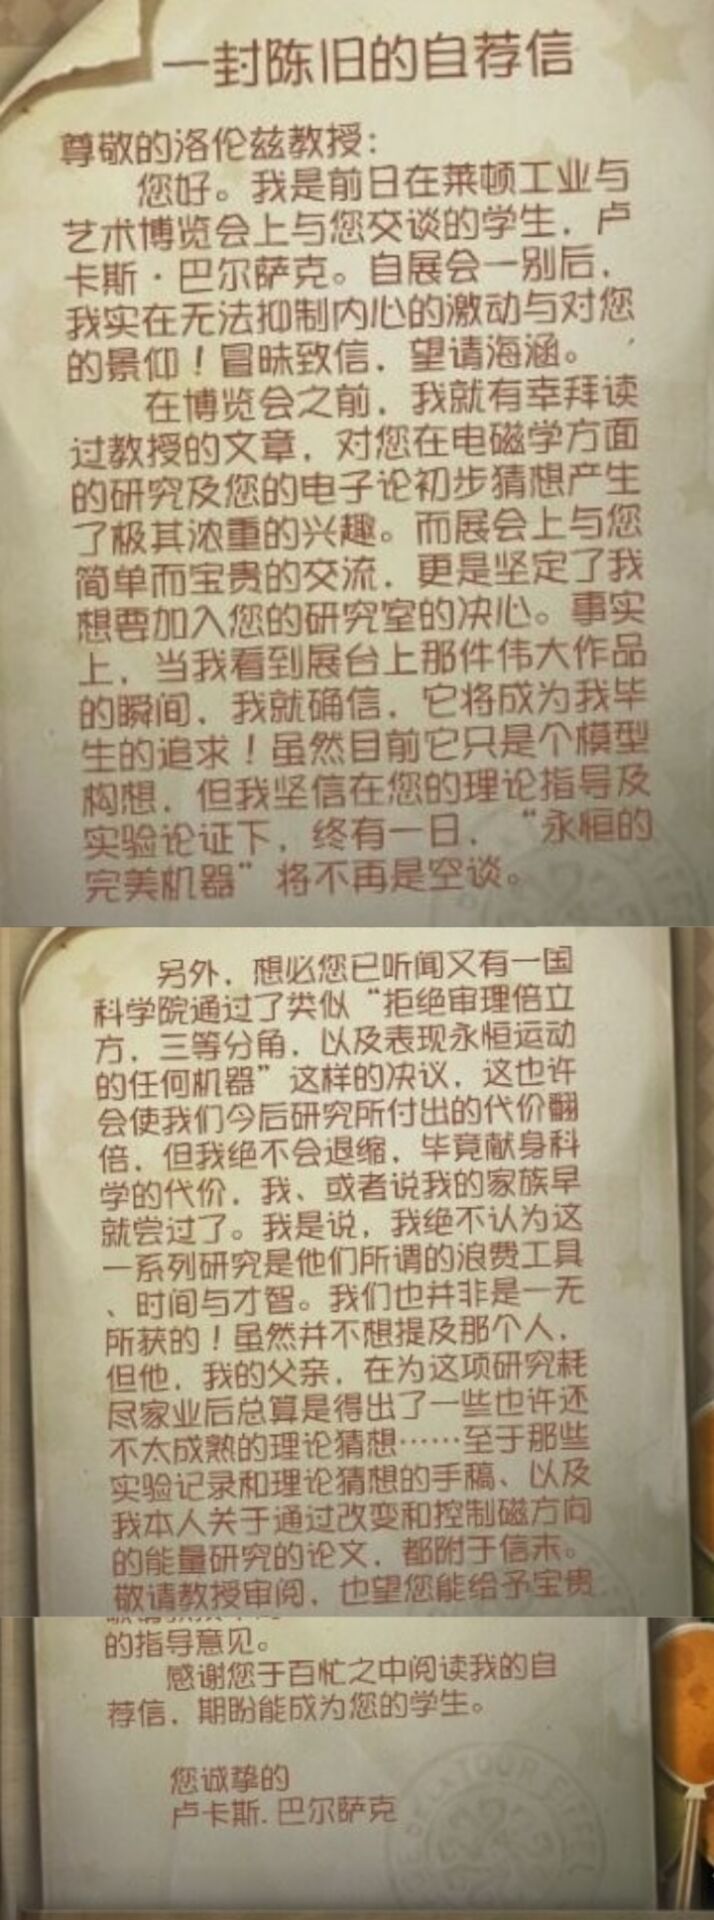 一封陈旧的自荐信
尊敬的洛伦兹教授：
您好。我是前日在莱顿工业与
艺术博览会上与您交谈的学生，卢
卡斯·巴尔萨克。自展会一别后，
我实在无法抑制内心的激动与对您
的景仰！冒昧致信，望请海涵。
在博览会之前，我就有幸拜读
过教授的文章，对您在电磁学方面
的研究及您的电子论初步猜想产生
了极其浓重的兴趣。而展会上与您
简单而宝贵的交流，更是坚定了我
想要加入您的研究室的决心。事实
上，当我看到展台上那件伟大作品
的瞬间，我就确信，它将成为我毕
生的追求！虽然目前它只是个模型
构想，但我坚信在您的理论指导及
实验论证下，终有一日，“永恒的
完美机器”将不再是空谈。
另外，想必您已听闻又有一国
科学院通过了类似“拒绝审理倍立
方，三等分角，以及表现永恒运动
的任何机器”这样的决议，这也许
会使我们今后研究所付出的代价翻
倍，但我绝不会退缩，毕竟献身科
学的代价，我、或者说我的家族早
就尝过了。我是说，我绝不认为这
一系列研究是他们所谓的浪费工具
、时间与才智。我们也并非是一无
所获的！虽然并不想提及那个人，
但他，我的父亲，在为这项研究耗
尽家业后总算是得出了一些也许还
不太成熟的理论猜想……至于那些
实验记录和理论猜想的手稿、以及
我本人关于通过改变和控制磁方向
的能量研究的论文，都附于信末。
敬请教授审阅，也望您能给予宝贵
的指导意见。
感谢您于百忙之中阅读我的自
荐信，期盼能成为您的学生。
您诚挚的
卢卡斯.巴尔萨克
TOUR EIFFEL